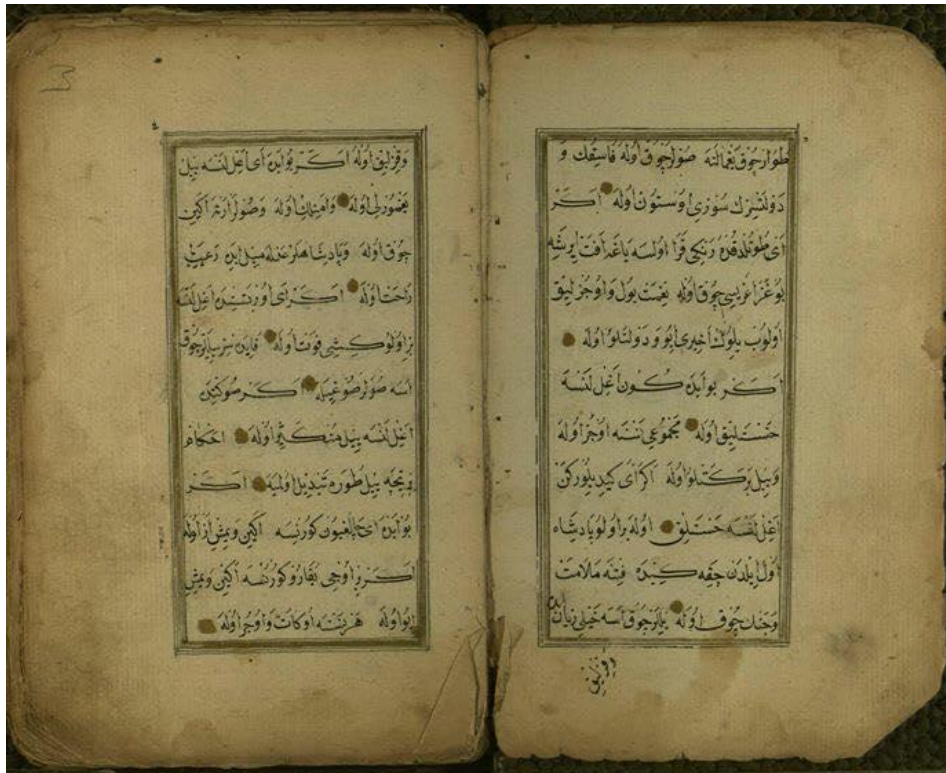 طوار چوق نغمالنه صولر چوق اوله فاسقلك و
دولتسزلك سوزی اوستون اوله اكر
ای طوتلدقده رنكی قرا اولسه باغه آفت ایریشه
بوغز اغریسی چوق اوله نعمت بول و اوجزلیق
اولوب یلوك آخیری ایو و دولتلو اوله
اكر بو آیده كون اغل لنسه
خستلیق اوله مجموعی نسنه اوجز اوله
و ییل بركتلو اوله اكر ای كید یلوركن
اغل لنسه خستلق اوله بر اولو پادشاه
اول ایلدن چقه كیده فتنه ملامت
و جنك چوق اوله یللر چوق اسه خیلی زیان ایده
و قزلیق
و قزلیق اوله اكر بو آیده ای اغل لنسه ییل
یغمورلی اوله و امنلك اوله و صولر ارته اكین
چوق اوله و پادشاهلر عدله میل ایده رعیت
راحت اوله اكر ای اوزرینده اغل لنسه
بر اولو كشی فوت اوله قاین یللر چوق
اسه صولر صوغیله اكر صوكنده
اغل لنسه ییل منكر اوله احكام
نتجه ییل طوره تبدیل اولمیه اكر
بو آیده ای كورنسه اكین و یمش از اوله
اكر اوجی یقارو كورنسه اكین و یمش
ایو اوله هر نسنه اوكات و اوجز اوله